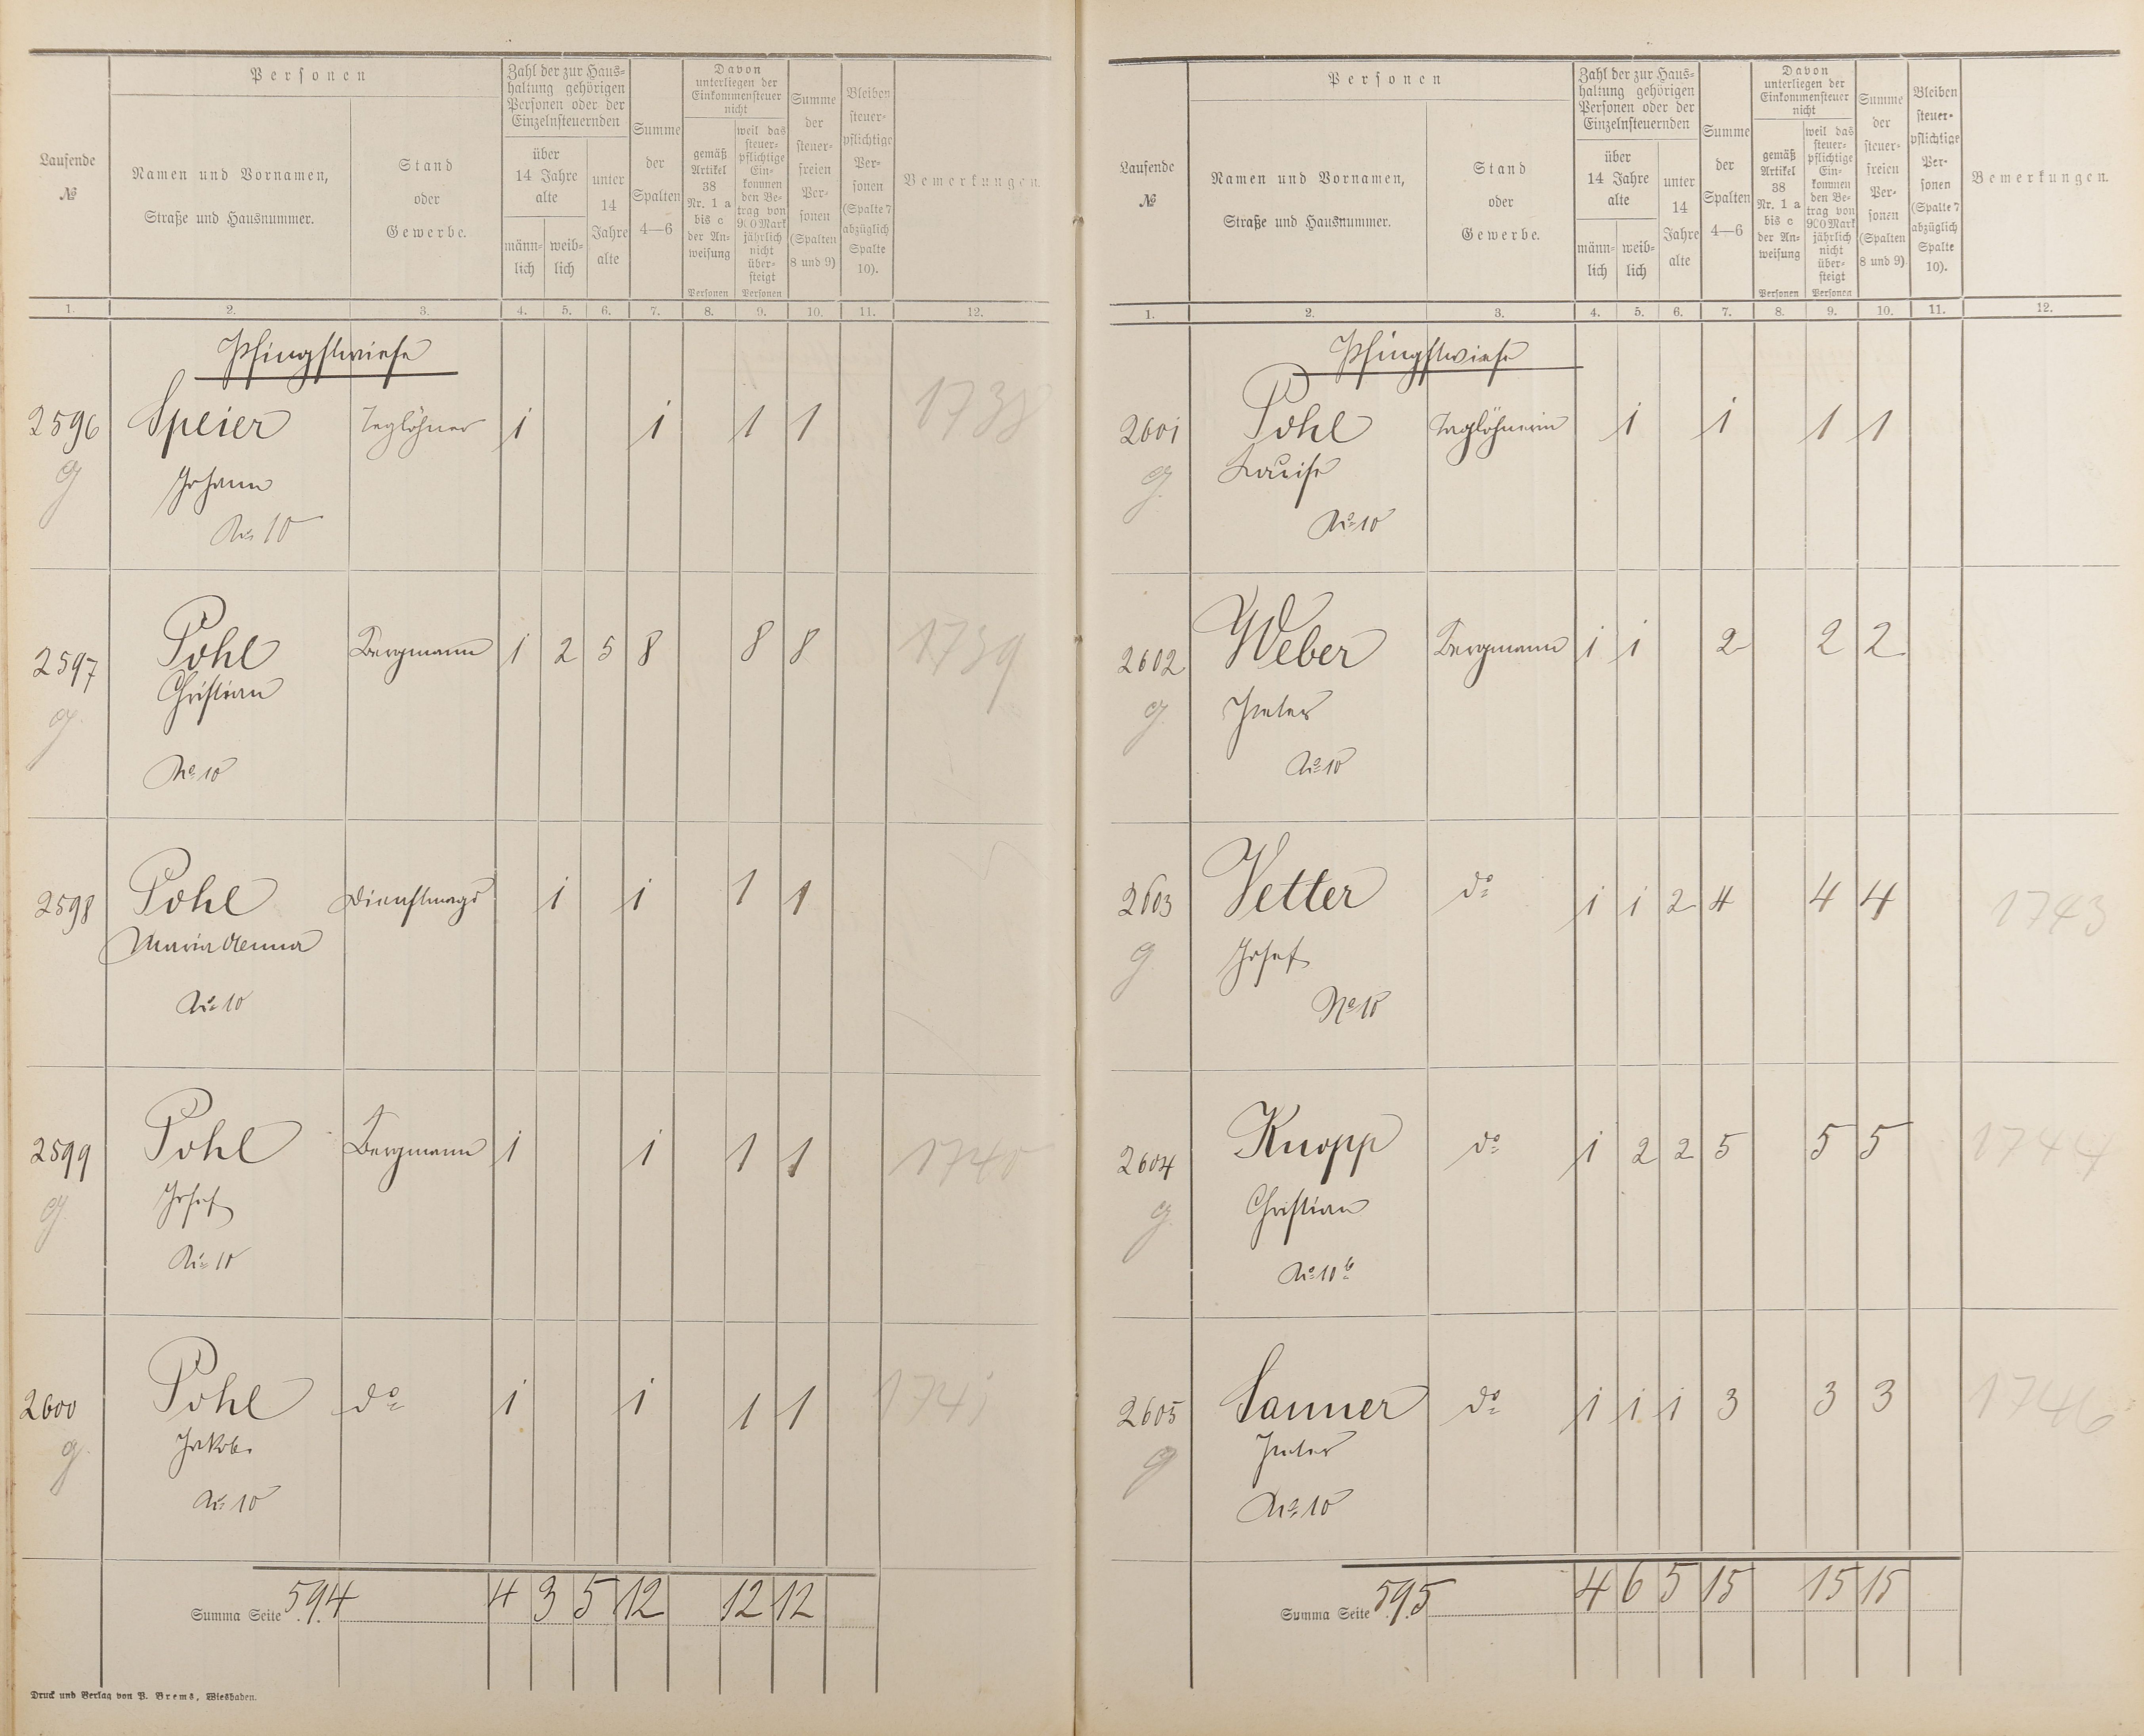 Personen
Laufende
№
Namen und Vornamen,
Straße und Hausnummer.
Stand
oder
Gewerbe.
Zahl der zur Haus=
haltung gehörigen
Personen oder der
Einzelnsteuernden
über
14 Jahre
alte
männ=
lich
weib=
lich
unter
14
Jahre
alte
Summe
der
Spalten
4—6
Davon
unterliegen der
Einkommensteuer
nicht
gemäß
Artikel
38
Nr. 1 a
bis c
der An=
weisung
Personen
weil das
steuer=
pflichtige
Ein=
kommen
den Be=
trag von
900 Mark
jährlich
nicht
über=
steigt
Personen
Summe
der
steuer=
freien
Per=
sonen
(Spalten
8 und 9)
Bleiben
steuer=
pflichtige
Per=
sonen
(Spalte 7
abzüglich
Spalte
10).
Bemerkungen.
1. 2. 3. 4. 5. 6. 7. 8. 9. 10. 11. 12.
Pfingstwiese
2596 Speier Taglöhner 1 1 1 1 1738
g Johann
No 10
2597 Pohl Bergmann 1 2 5 8 8 8 1739
g. Christian
No 10
2598 Pohl Dienstmagd 1 1 1 1
Maria Anna
No 10
2599 Pohl Bergmann 1 1 1 1 1740
g Josef
No 10
2600 Pohl do 1 1 1 1 1741
g. Jakob.
No 10
Summa Seite 594 4 3 5 12 12 12
Druck und Verlag von P. Brems, Wiesbaden.
Personen
Laufende
№
Namen und Vornamen,
Straße und Hausnummer.
Stand
oder
Gewerbe.
Zahl der zur Haus=
haltung gehörigen
Personen oder der
Einzelnsteuernden
über
14 Jahre
alte
männ=
lich
weib=
lich
unter
14
Jahre
alte
Summe
der
Spalten
4—6
Davon
unterliegen der
Einkommensteuer
nicht
gemäß
Artikel
38
Nr. 1 a
bis c
der An=
weisung
Personen
weil das
steuer=
pflichtige
Ein=
kommen
den Be=
trag von
900 Mark
jährlich
nicht
über=
steigt
Personen
Summe
der
steuer=
freien
Per=
sonen
(Spalten
8 und 9)
Bleiben
steuer=
pflichtige
Per=
sonen
(Spalte 7
abzüglich
Spalte
10).
Bemerkungen.
1. 2. 3. 4. 5. 6. 7. 8. 9. 10. 11. 12.
Pfingstwiese
2601 Pohl Taglöhnerin 1 1 1 1
g. Louise
No 10
2602 Weber Bergmann 1 1 2 2 2
g. Peter
No 10
2603 Vetter do 1 1 2 4 4 4 1743
g. Josef
No 10
2604 Knopp do 1 2 2 5 5 5 1744
g. Christian
No 10 b
2605 Sanner do 1 1 1 3 3 3 1746
g Peter
No 10
Summa Seite 595 4 6 5 15 15 15